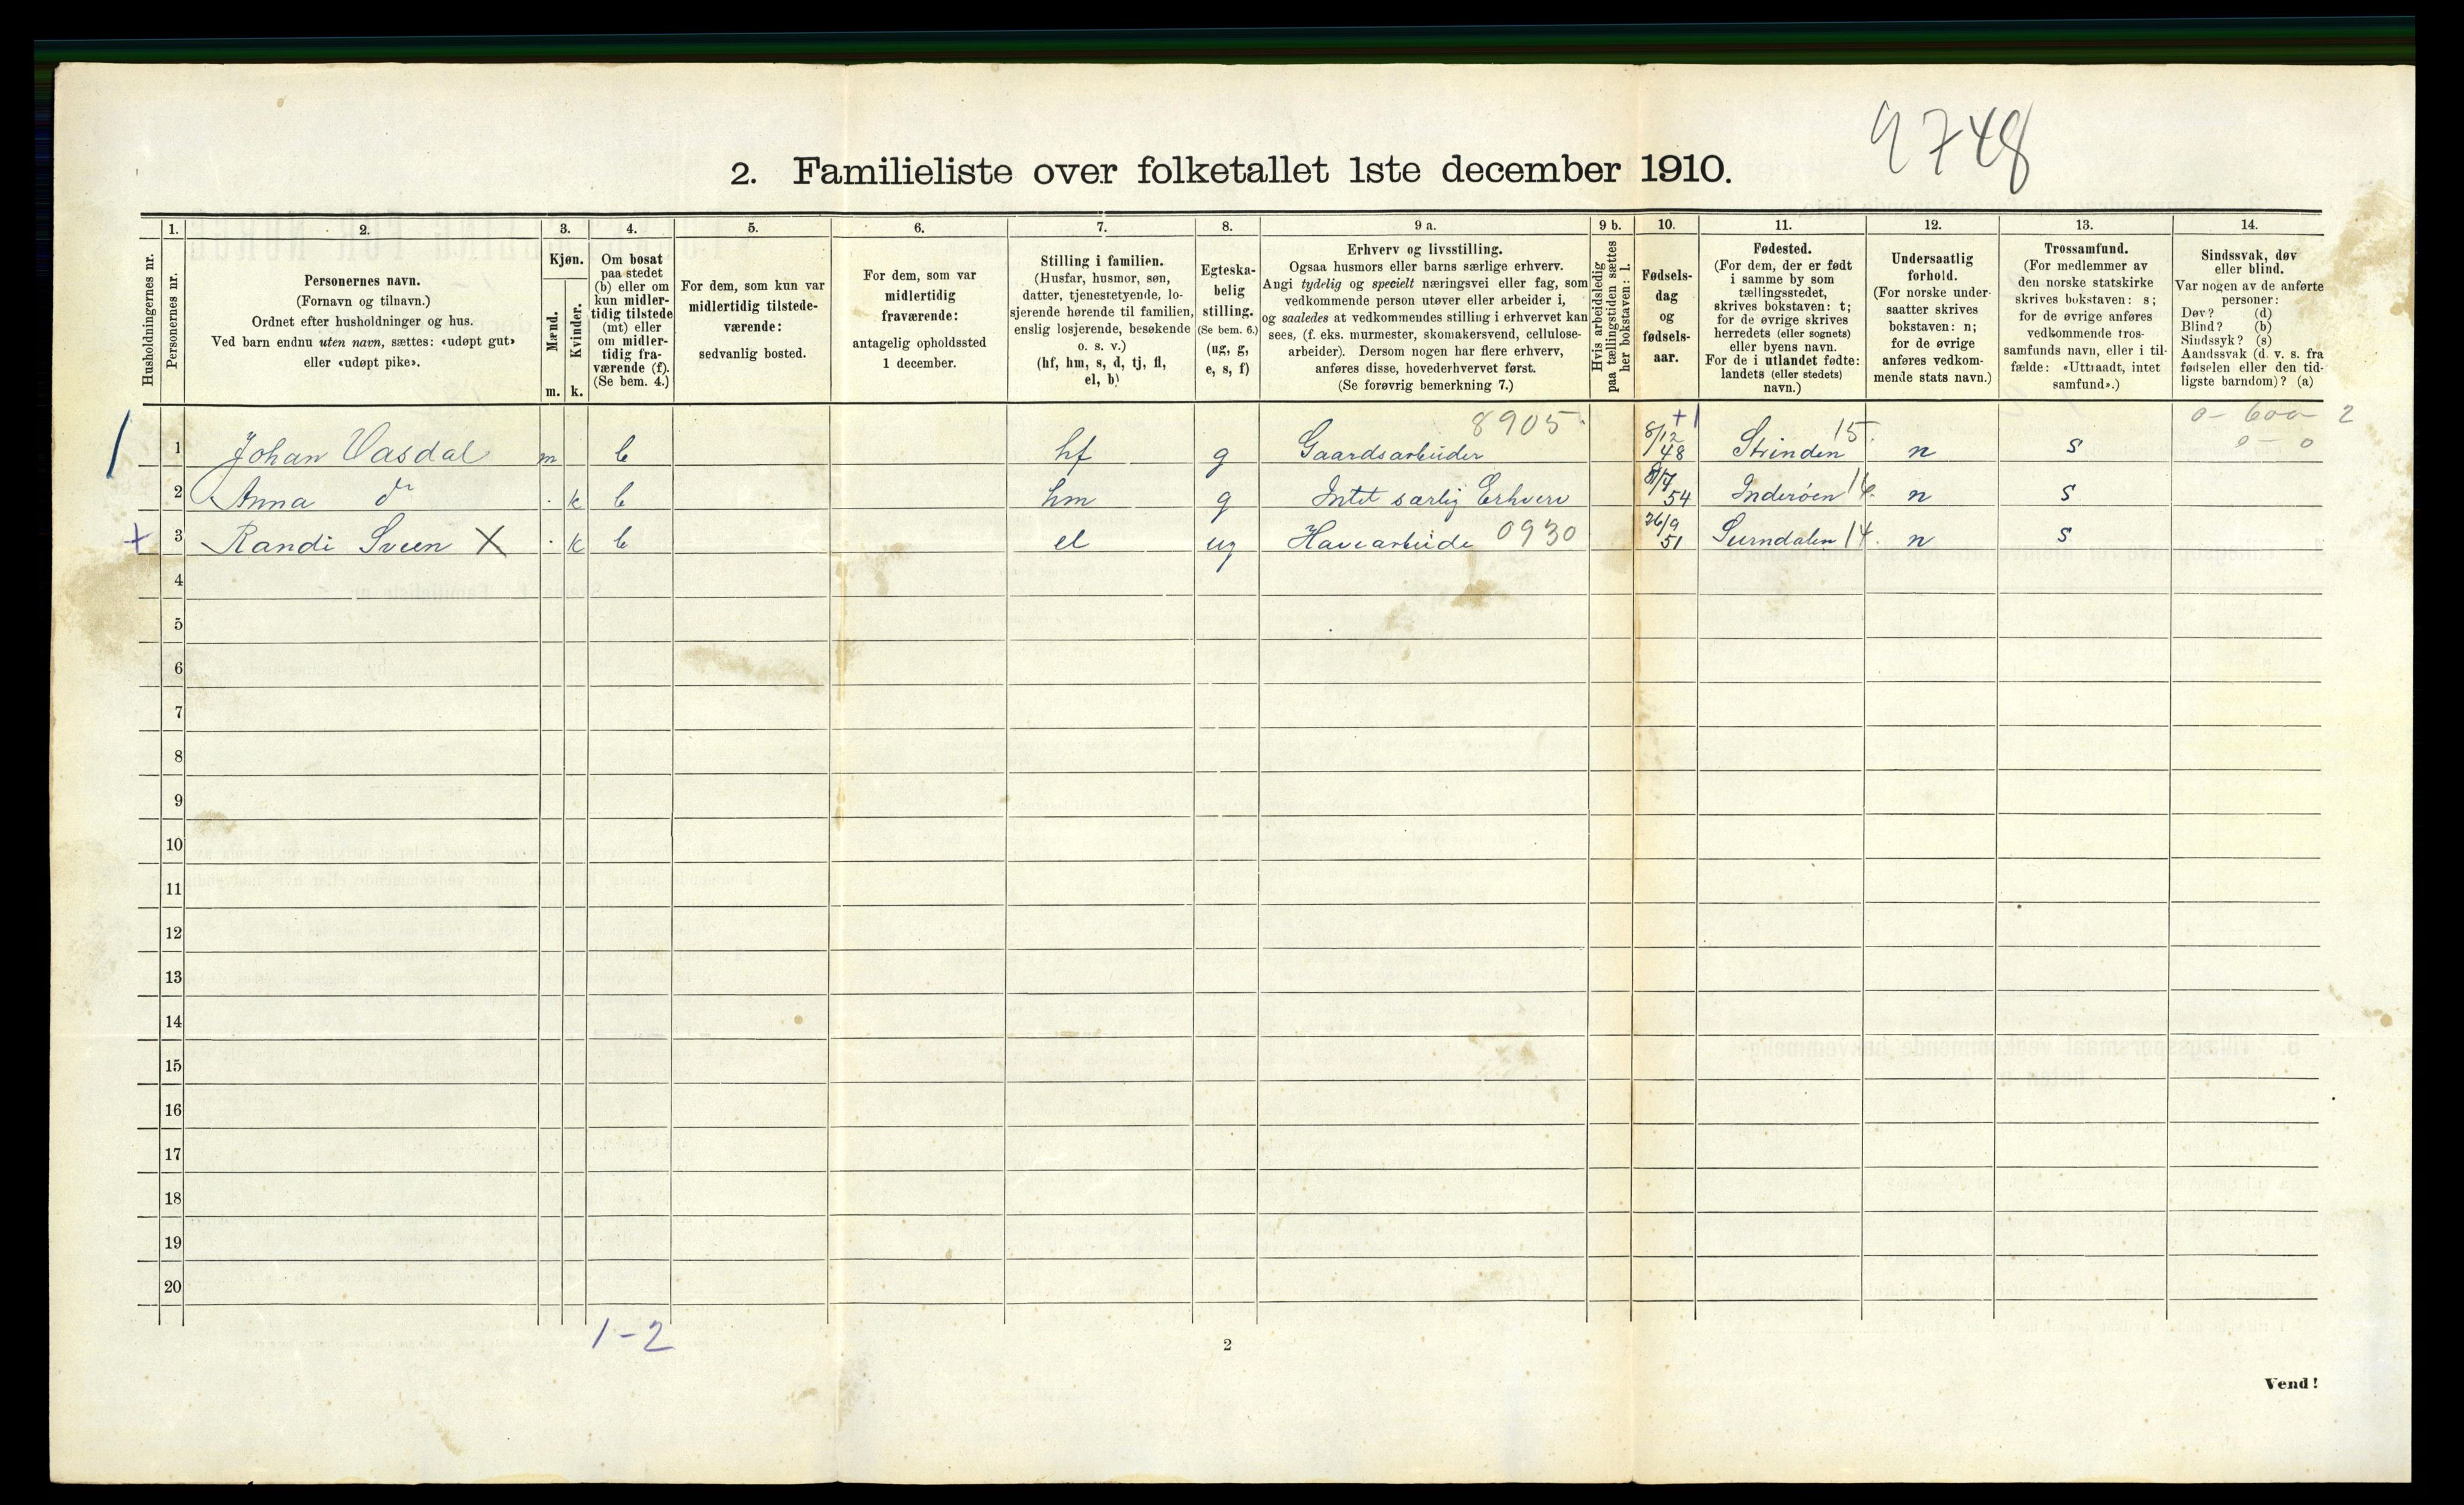 9748
2. Familieliste over folketallet 1ste december 1910.
Husholdningernes nr.
1.
Personernes nr.
2.
Personernes navn.
(Fornavn og tilnavn.)
Ordnet efter husholdninger og hus.
Ved barn endnu uten navn, sættes: «udøpt gut»
eller «udøpt pike».
3.
Kjøn.
Mænd.
Kvinder.
m. k.
4.
Om bosat
paa stedet
(b) eller om
kun midler-
tidig tilstede
(mt) eller
om midler-
tidig fra-
værende (f).
(Se bem. 4.)
5.
For dem, som kun var
midlertidig tilstede-
værende:
sedvanlig bosted.
6.
For dem, som var
midlertidig
fraværende:
antagelig opholdssted
1 december.
7.
Stilling i familien.
(Husfar, husmor, søn,
datter, tjenestetyende, lo-
sjerende hørende til familien,
enslig losjerende, besøkende
o. s. v.)
(hf, hm, s, d, tj, fl,
el, b)
8.
Egteska-
belig
stilling.
(Se bem. 6.)
(ug, g,
e, s, f)
9 a.
Erhverv og livsstilling.
Ogsaa husmors eller barns særlige erhverv.
Angi tydelig og specielt næringsvei eller fag, som
vedkommende person utøver eller arbeider i,
og saaledes at vedkommendes stilling i erhvervet kan
sees, (f. eks. murmester, skomakersvend, cellulose-
arbeider). Dersom nogen har flere erhverv,
anføres disse, hovederhvervet først.
(Se forøvrig bemerkning 7.)
9 b.
Hvis arbeidsledig
paa tællingstiden sættes
her bokstaven: l.
10.
Fødsels-
dag
og
fødsels-
aar.
11.
Fødested.
(For dem, der er født
i samme by som
tællingsstedet,
skrives bokstaven: t;
for de øvrige skrives
herredets (eller sognets)
eller byens navn.
For de i utlandet fødte:
landets (eller stedets)
navn.)
12.
Undersaatlig
forhold.
(For norske under-
saatter skrives
bokstaven: n;
for de øvrige
anføres vedkom-
mende stats navn.)
13.
Trossamfund.
(For medlemmer av
den norske statskirke
skrives bokstaven: s;
for de øvrige anføres
vedkommende tros-
samfunds navn, eller i til-
fælde: «Uttraadt, intet
samfund».)
14.
Sindssvak, døv
eller blind.
Var nogen av de anførte
personer:
Døv? (d)
Blind? (b)
Sindssyk? (s)
Aandssvak (d. v. s. fra
fødselen eller den tid-
ligste barndom)? (a)
8905 +1 0 - 600 - 2
1 1 Johan Vasdal m b hf g Gaardsarbeider 8/12 48 Strinden 15. n s 0 - 0
2 Anna do k b hm g Intet særlig Erhverv 8/7 54 Inderöen 14. n s
+ 3 Randi Sveen X k b el ug Havearbeide 0930 26/9 51 Surndalen 14. n s
4
5
6
7
8
9
10
11
12
13
14
15
16
17
18
19
20
1 - 2
2
Vend!